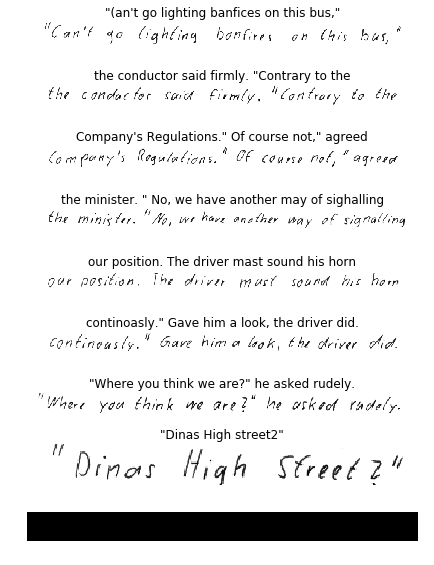 "(an't go lighting banfices on this bus,"
"Can't go lighting bonfires on this bus,"
the conductor said firmly. "Contrary to the
the conductor said firmly. "Contrary to the
Company's Regulations." Of course not," agreed
Company's Regulations." Of course not," agreed
the minister. " No, we have another may of sighalling
the minister. "No, we have another way of signalling
our position. The driver mast sound his horn
our position. The driver must sound his horn
continoasly." Gave him a look, the driver did.
continously." Gave him a look, the driver did.
"Where you think we are?" he asked rudely.
"Where you think we are?" he asked rudely.
"Dinas High street2"
"Dinas High Street?"